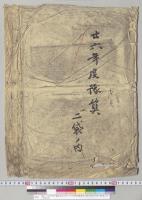 廿六年度豫算
二袋ノ内